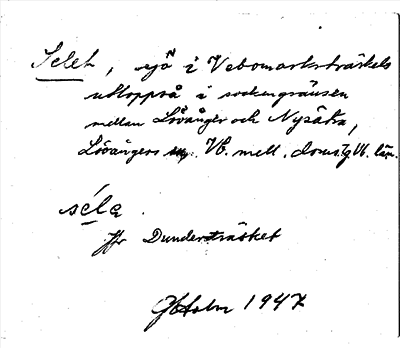 Selet, sjö i Vebomarksträskets
utloppså i sockengränsen
mellan Lövånger och Nysätra,
Lövångers sn. Vb. mell. doms. Vb. län.
séla
jfr Dunderträsket
Holm 1947